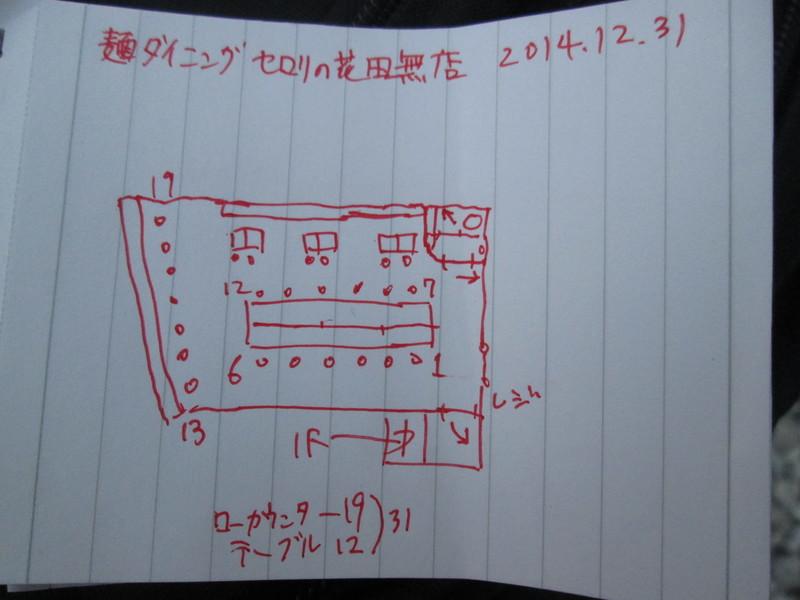 麺ダイニングセロリの花田無店 2014.12.31
19
12 7
6 1
13
1F
ローカウンター 19
テーブル 12 ) 31